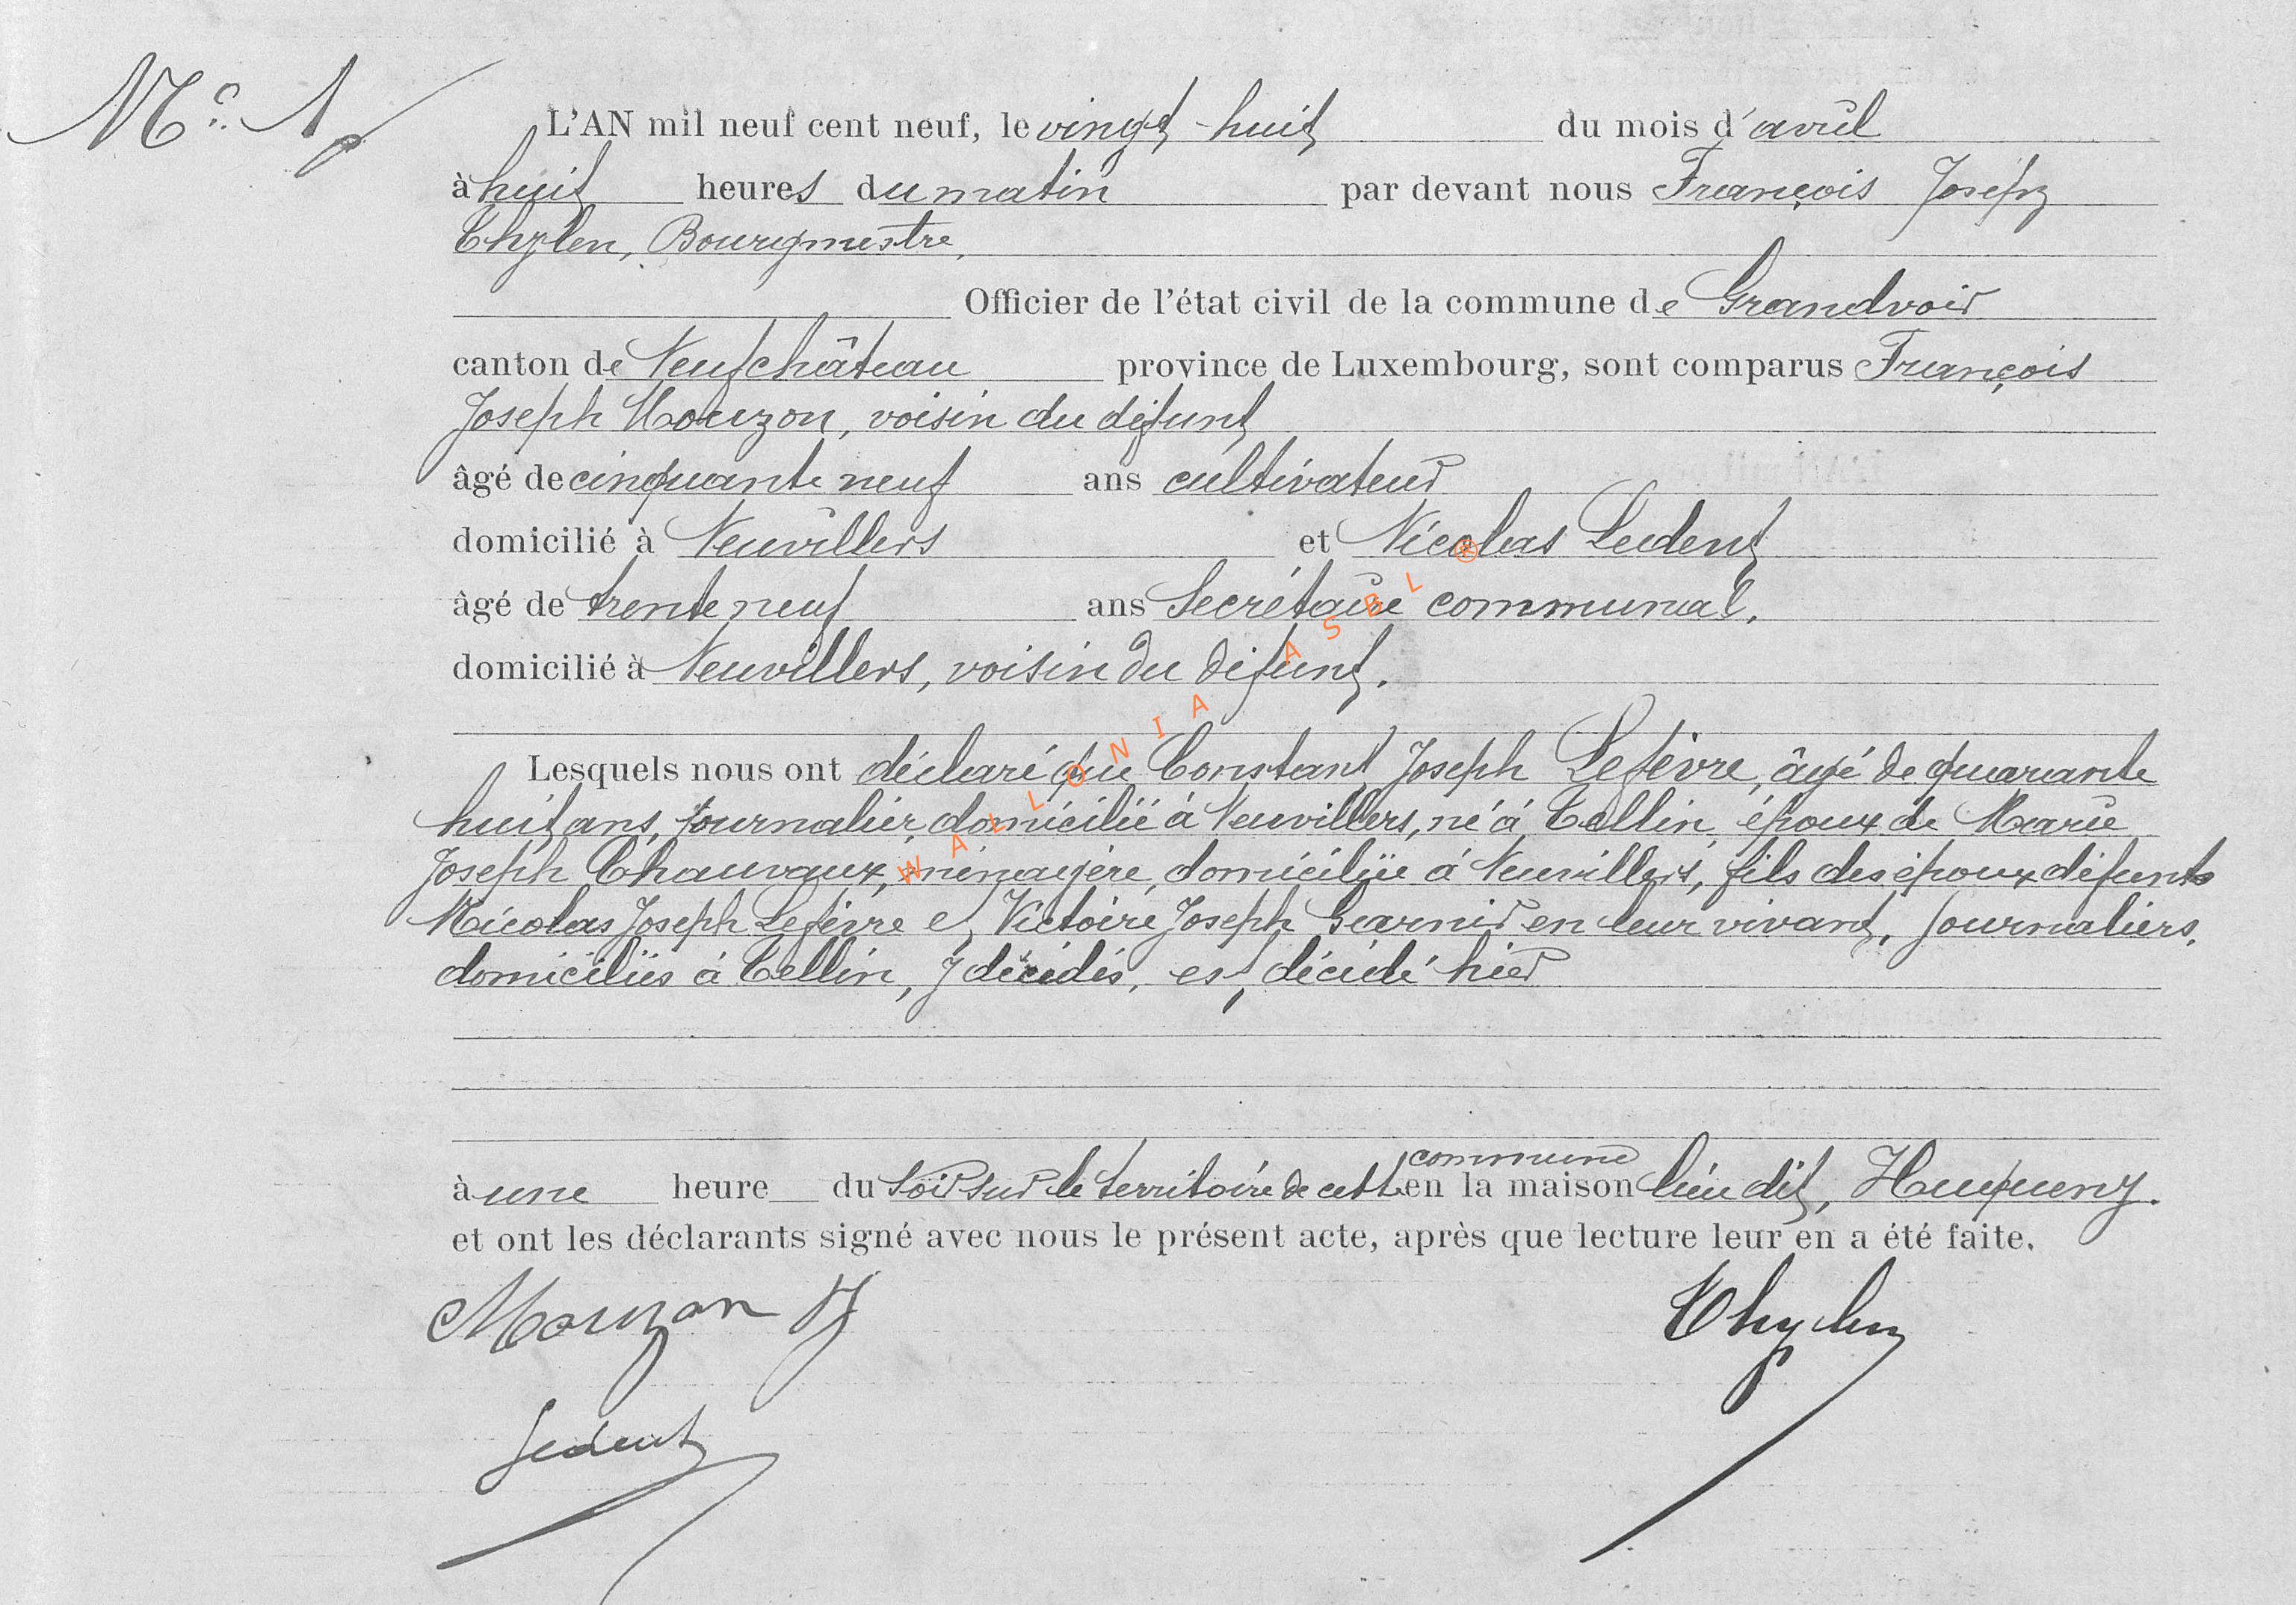 Nº 1
L'AN mil neuf cent neuf, le vingt-huit du mois d'avril
à huit heures du matin par devant nous François Joseph
Thylen, Bourgmestre,
Officier de l'état civil de la commune de Grandvoir
canton de Neufchâteau province de Luxembourg, sont comparus François
Joseph Mouzon, voisin du défunt
âgé de cinquante neuf ans cultivateur
domicilié à Neuvillers et Nicolas Ledent
âgé de trente neuf ans Secrétaire communal.
domicilié à Neuvillers, voisin du défunt.
Lesquels nous ont déclaré que Constant Joseph Lefèvre, âgé de quarante
huit ans, journalier, domicilié à Neuvillers, né à Tellin, époux de Marie
Joseph Chauvaux, ménagère, domiciliée à Neuvillers, fils des époux défunts
Nicolas Joseph Lefèvre et Victoire Joseph Garnir en leur vivant, journaliers,
domiciliés à Tellin, y décédés, est décédé hier
commune
à une heure du soir sur le territoire de cette en la maison lieu dit,
et ont les déclarants signé avec nous le présent acte, après que lecture leur en a été faite.
Mouzon FJ Thylen
Ledent
WALLONIA ASBL ®